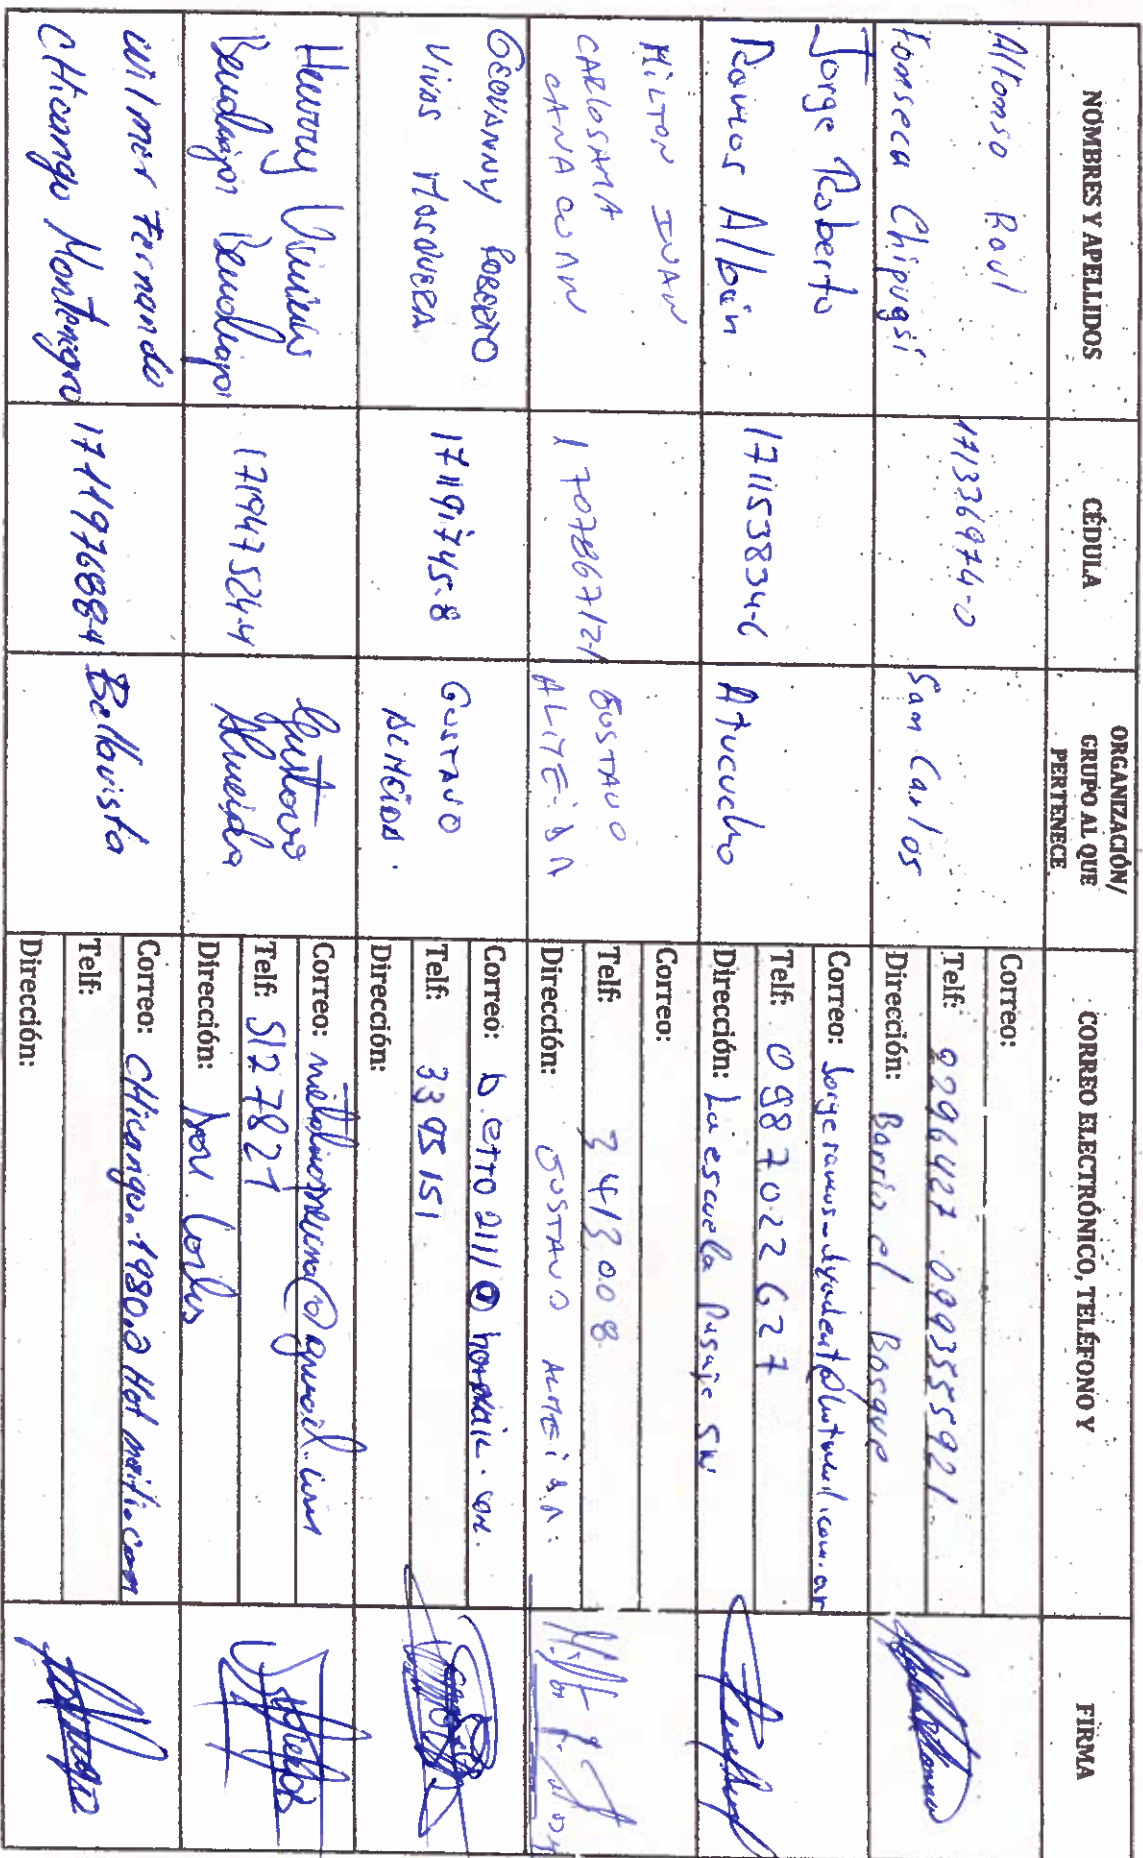 NOMBRES Y APELLIDOS
CÉDULA
ORGANIZACIÓN/
GRUPO AL QUE
PERTENECE
CORREO ELECTRÓNICO, TELÉFONO Y
FIRMA
Alfonso Raúl
Fonseca Chipugsi
171336974-0
San Carlos
Correo:
Telf: 2296427 0993555921
Dirección: Barrio el Bosque
Jorge Roberto
Ramos Albán
171153834-6
Atucucho
Correo:
Telf: 0987022627
Dirección: La escuela Pasaje SN
MILTON IVAN
CARLOSAMA
170786712-1
GUSTAVO
ALMEIDA
Correo:
Telf: 3413008
Dirección: GUSTAVO ALMEIDA
GEOVANNY ROBERTO
VIVAS MOSQUERA
171191745-8
GUSTAVO
ALMEIDA.
Correo: b.etto2111@hotmail.com.
Telf: 3395151
Dirección:
Henrry Vinicio
171947524-4
Gustavo
Almeida
Correo:
Telf: 5127821
Dirección:
Wilmer Fernando
CHicango Montenegro
171197688-4
Bellavista
Correo: CHicango.1980.@Hotmail.com
Telf:
Dirección: